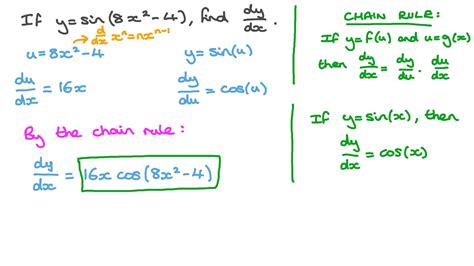 If y=sin(8x²-4), find dy/dx.
d/dx xⁿ=nxⁿ⁻¹
u=8x²-4 y=sin(u)
du/dx=16x dy/du=cos(u)
By the chain rule:
dy/dx=16x cos(8x²-4)
CHAIN RULE:
If y=f(u) and u=g(x)
then dy/dx=dy/du·du/dx
If y=sin(x), then
dy/dx=cos(x)